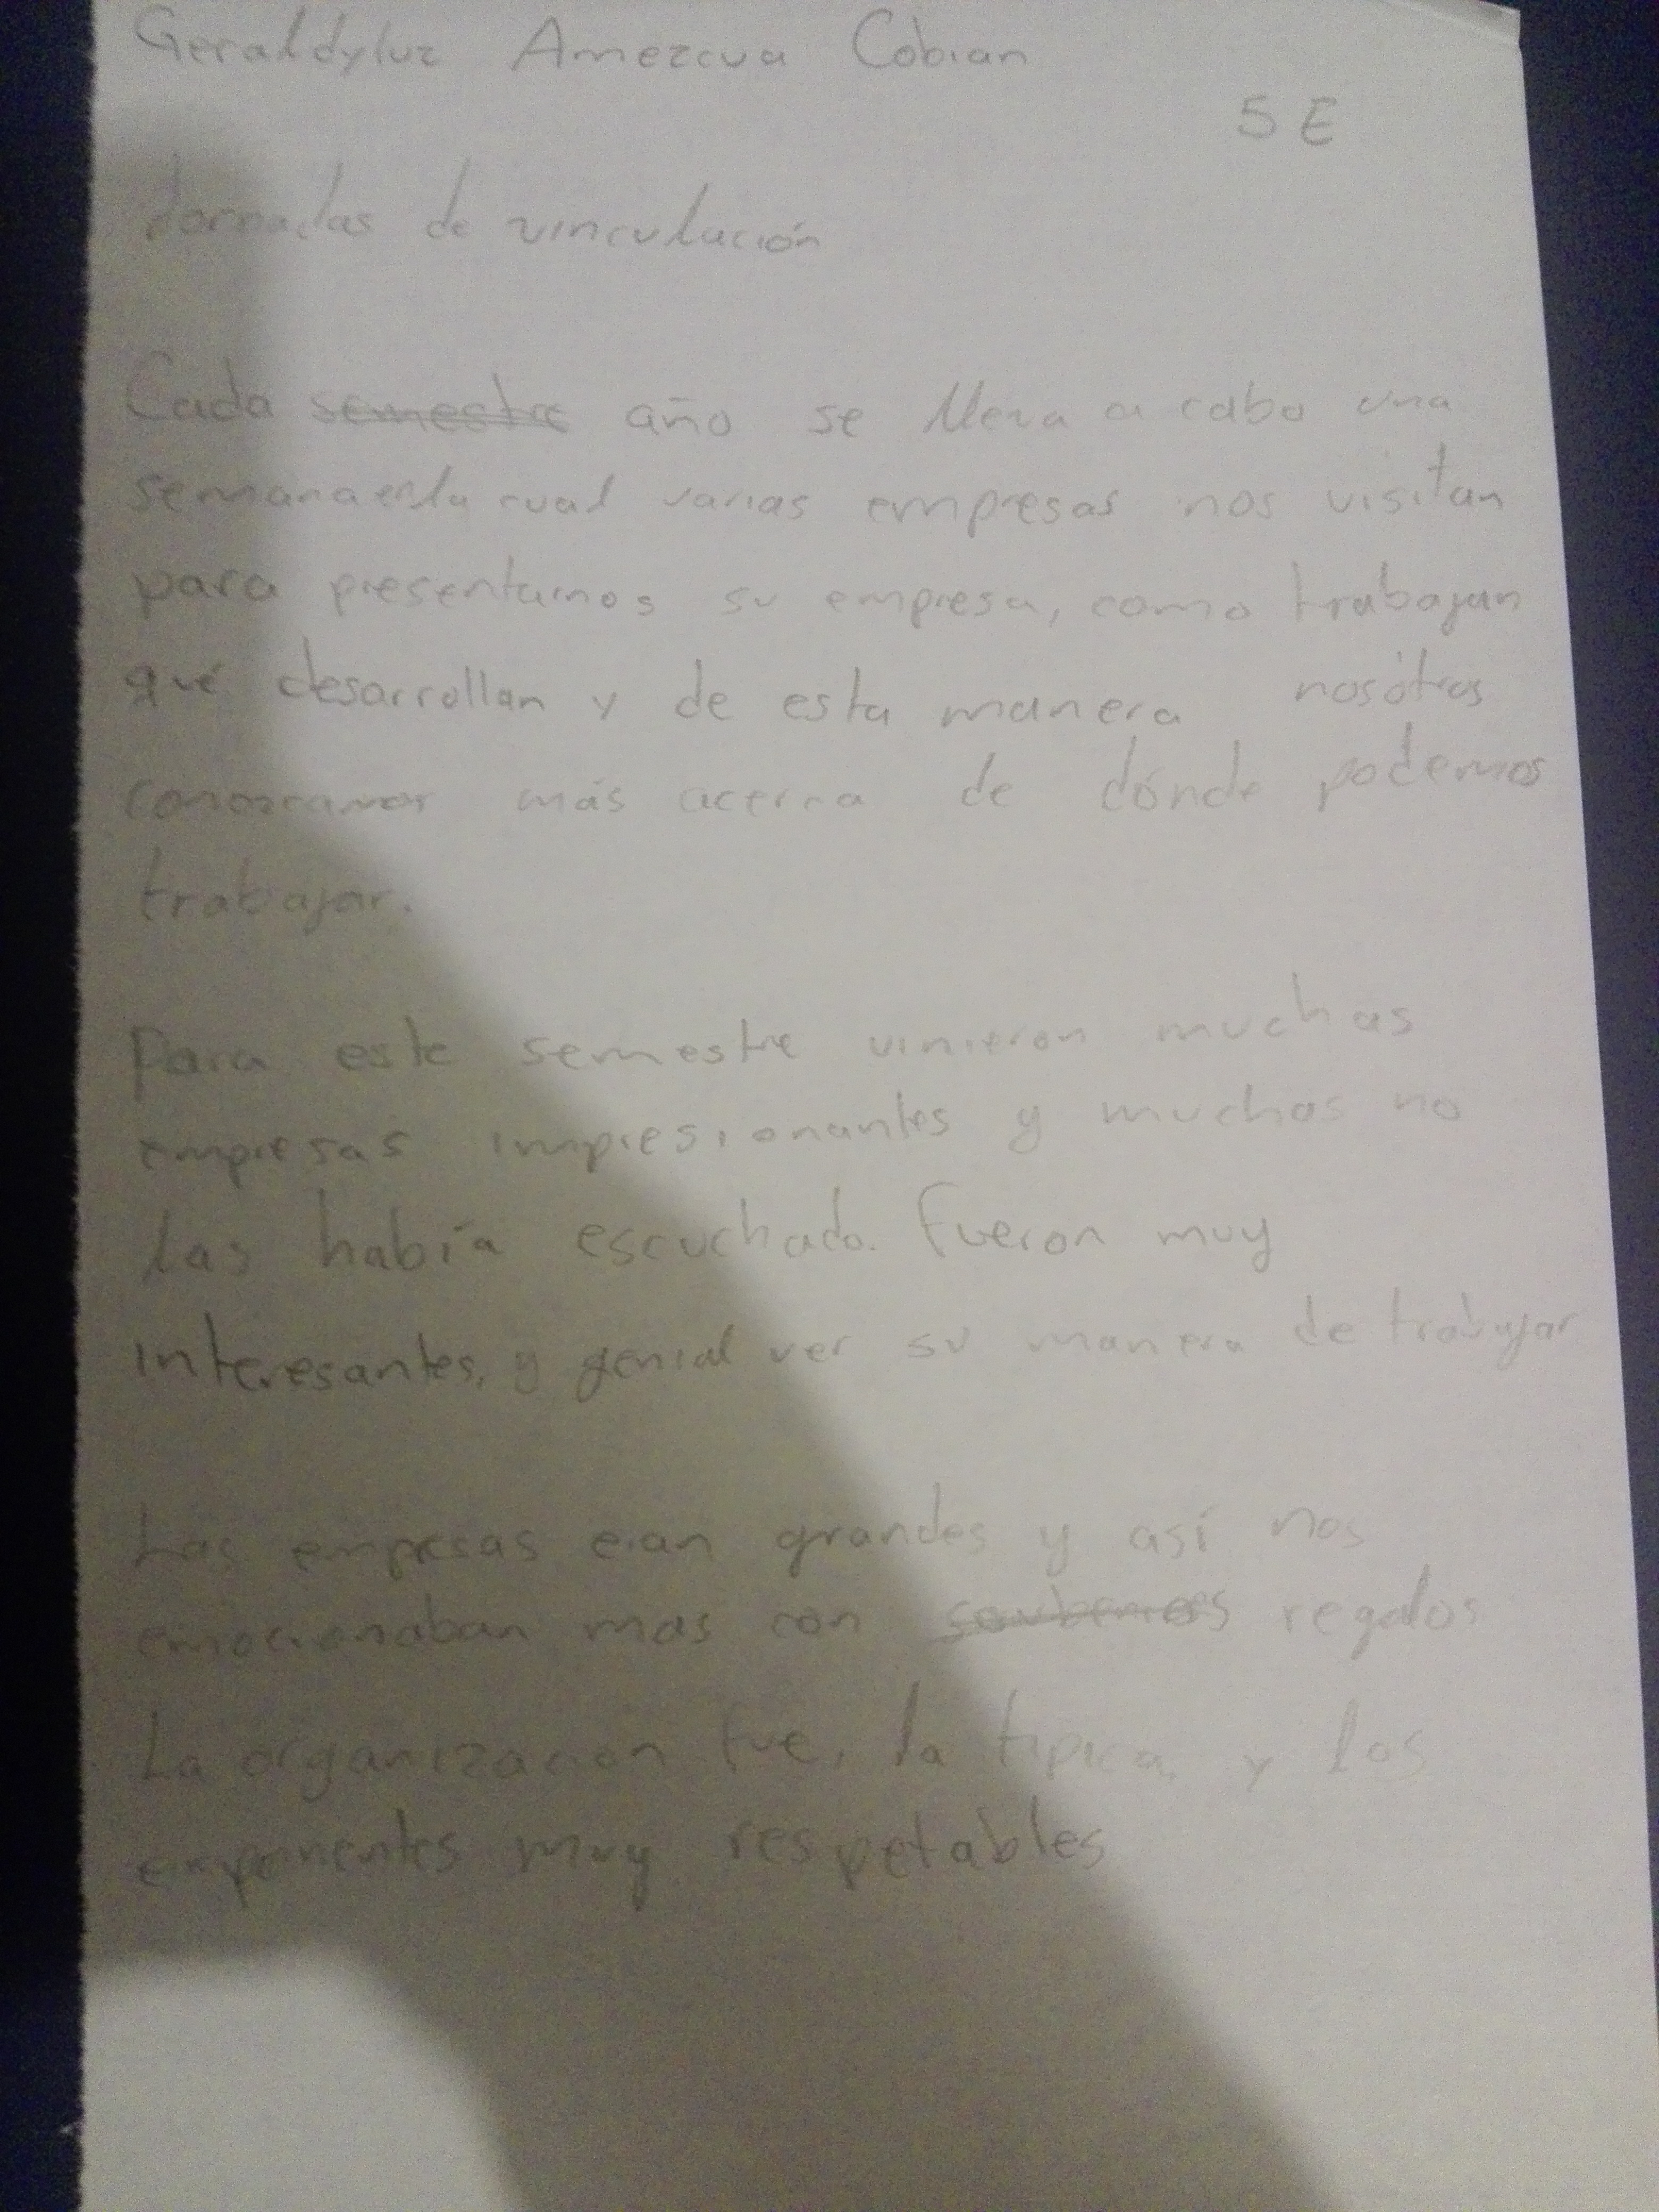 Geraldyluz Amezcua Cobian
5 E
Jornadas de vinculación
Cada semestre año se lleva a cabo una
semana en la cual varias empresas nos visitan
para presentarnos su empresa, como trabajan
qué desarrollan y de esta manera nosotros
conozcamos más acerca de dónde podemos
trabajar.
Para este semestre vinieron muchas
empresas impresionantes y muchas no
las había escuchado. Fueron muy
interesantes, y genial ver su manera de trabajar
Las empresas eran grandes y así nos
emocionaban mas con regalos
La organización fue, la tipica, y los
exponentes muy respetables